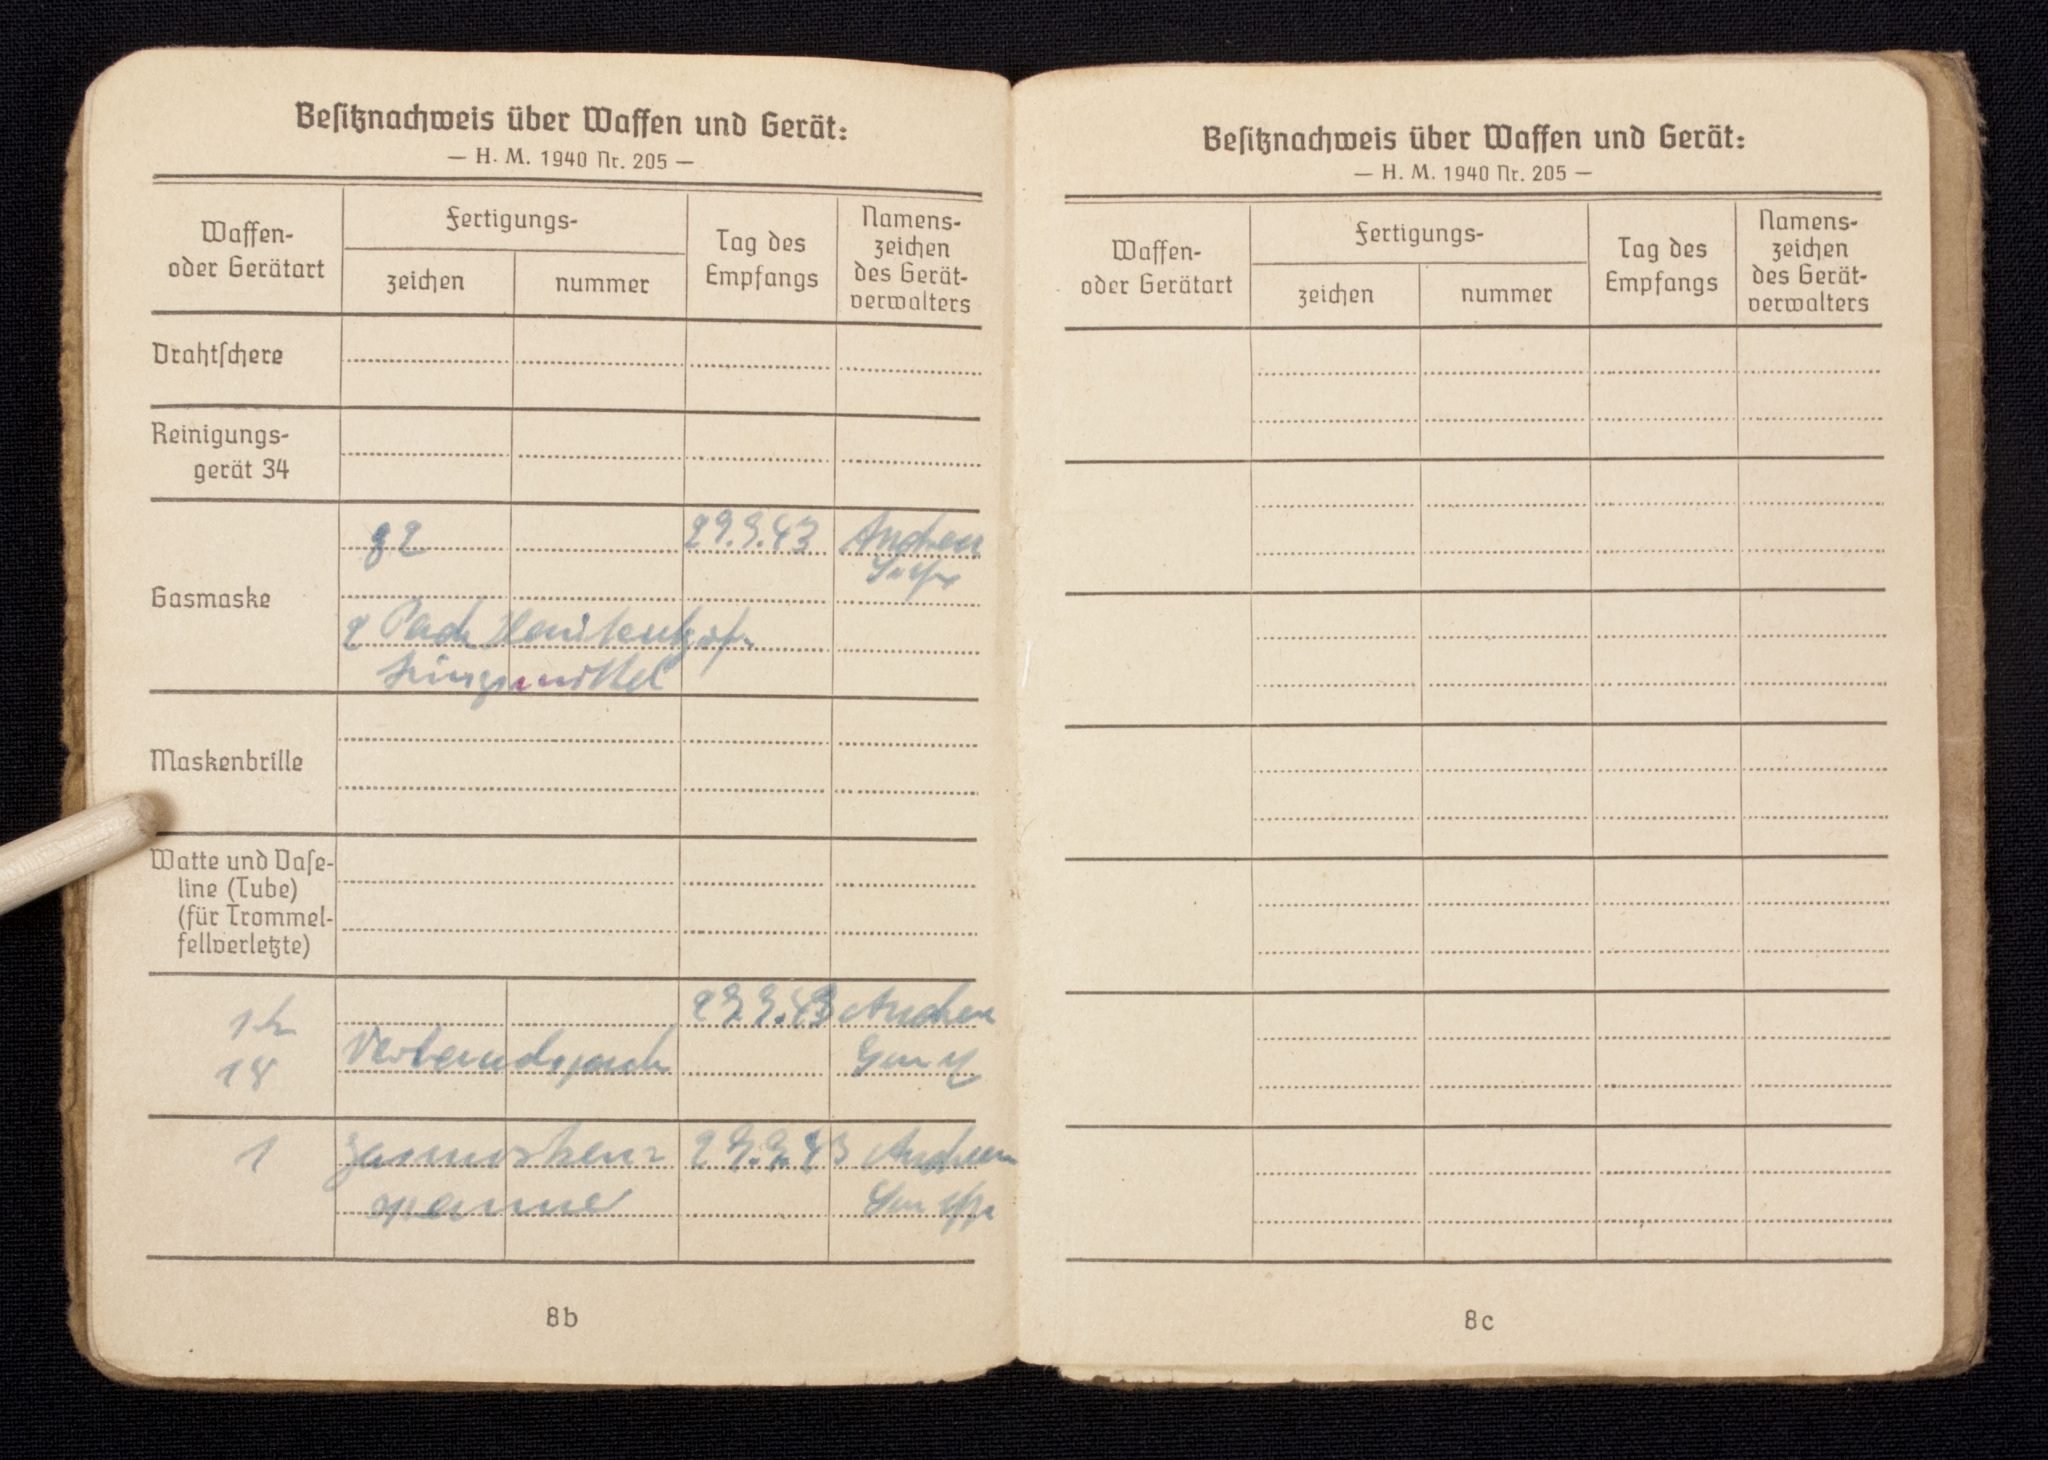 Besitznachweis über Waffen und Gerät:
— H. M. 1940 Nr. 205 —
Waffen-
oder Gerätart
Fertigungs-
zeichen
nummer
Tag des
Empfangs
Namens-
zeichen
des Gerät-
verwalters
Drahtschere
Reinigungs-
gerät 34
Gasmaske
29.9.43
2 Pack Hautentgif-
tungsmittel
Maskenbrille
Watte und Vase-
line (Tube)
(für Trommel-
fellverletzte)
Verbandspack
1 Gasmasken-
spanne
8b
Besitznachweis über Waffen und Gerät:
— H. M. 1940 Nr. 205 —
Waffen-
oder Gerätart
Fertigungs-
zeichen
nummer
Tag des
Empfangs
Namens-
zeichen
des Gerät-
verwalters
8c